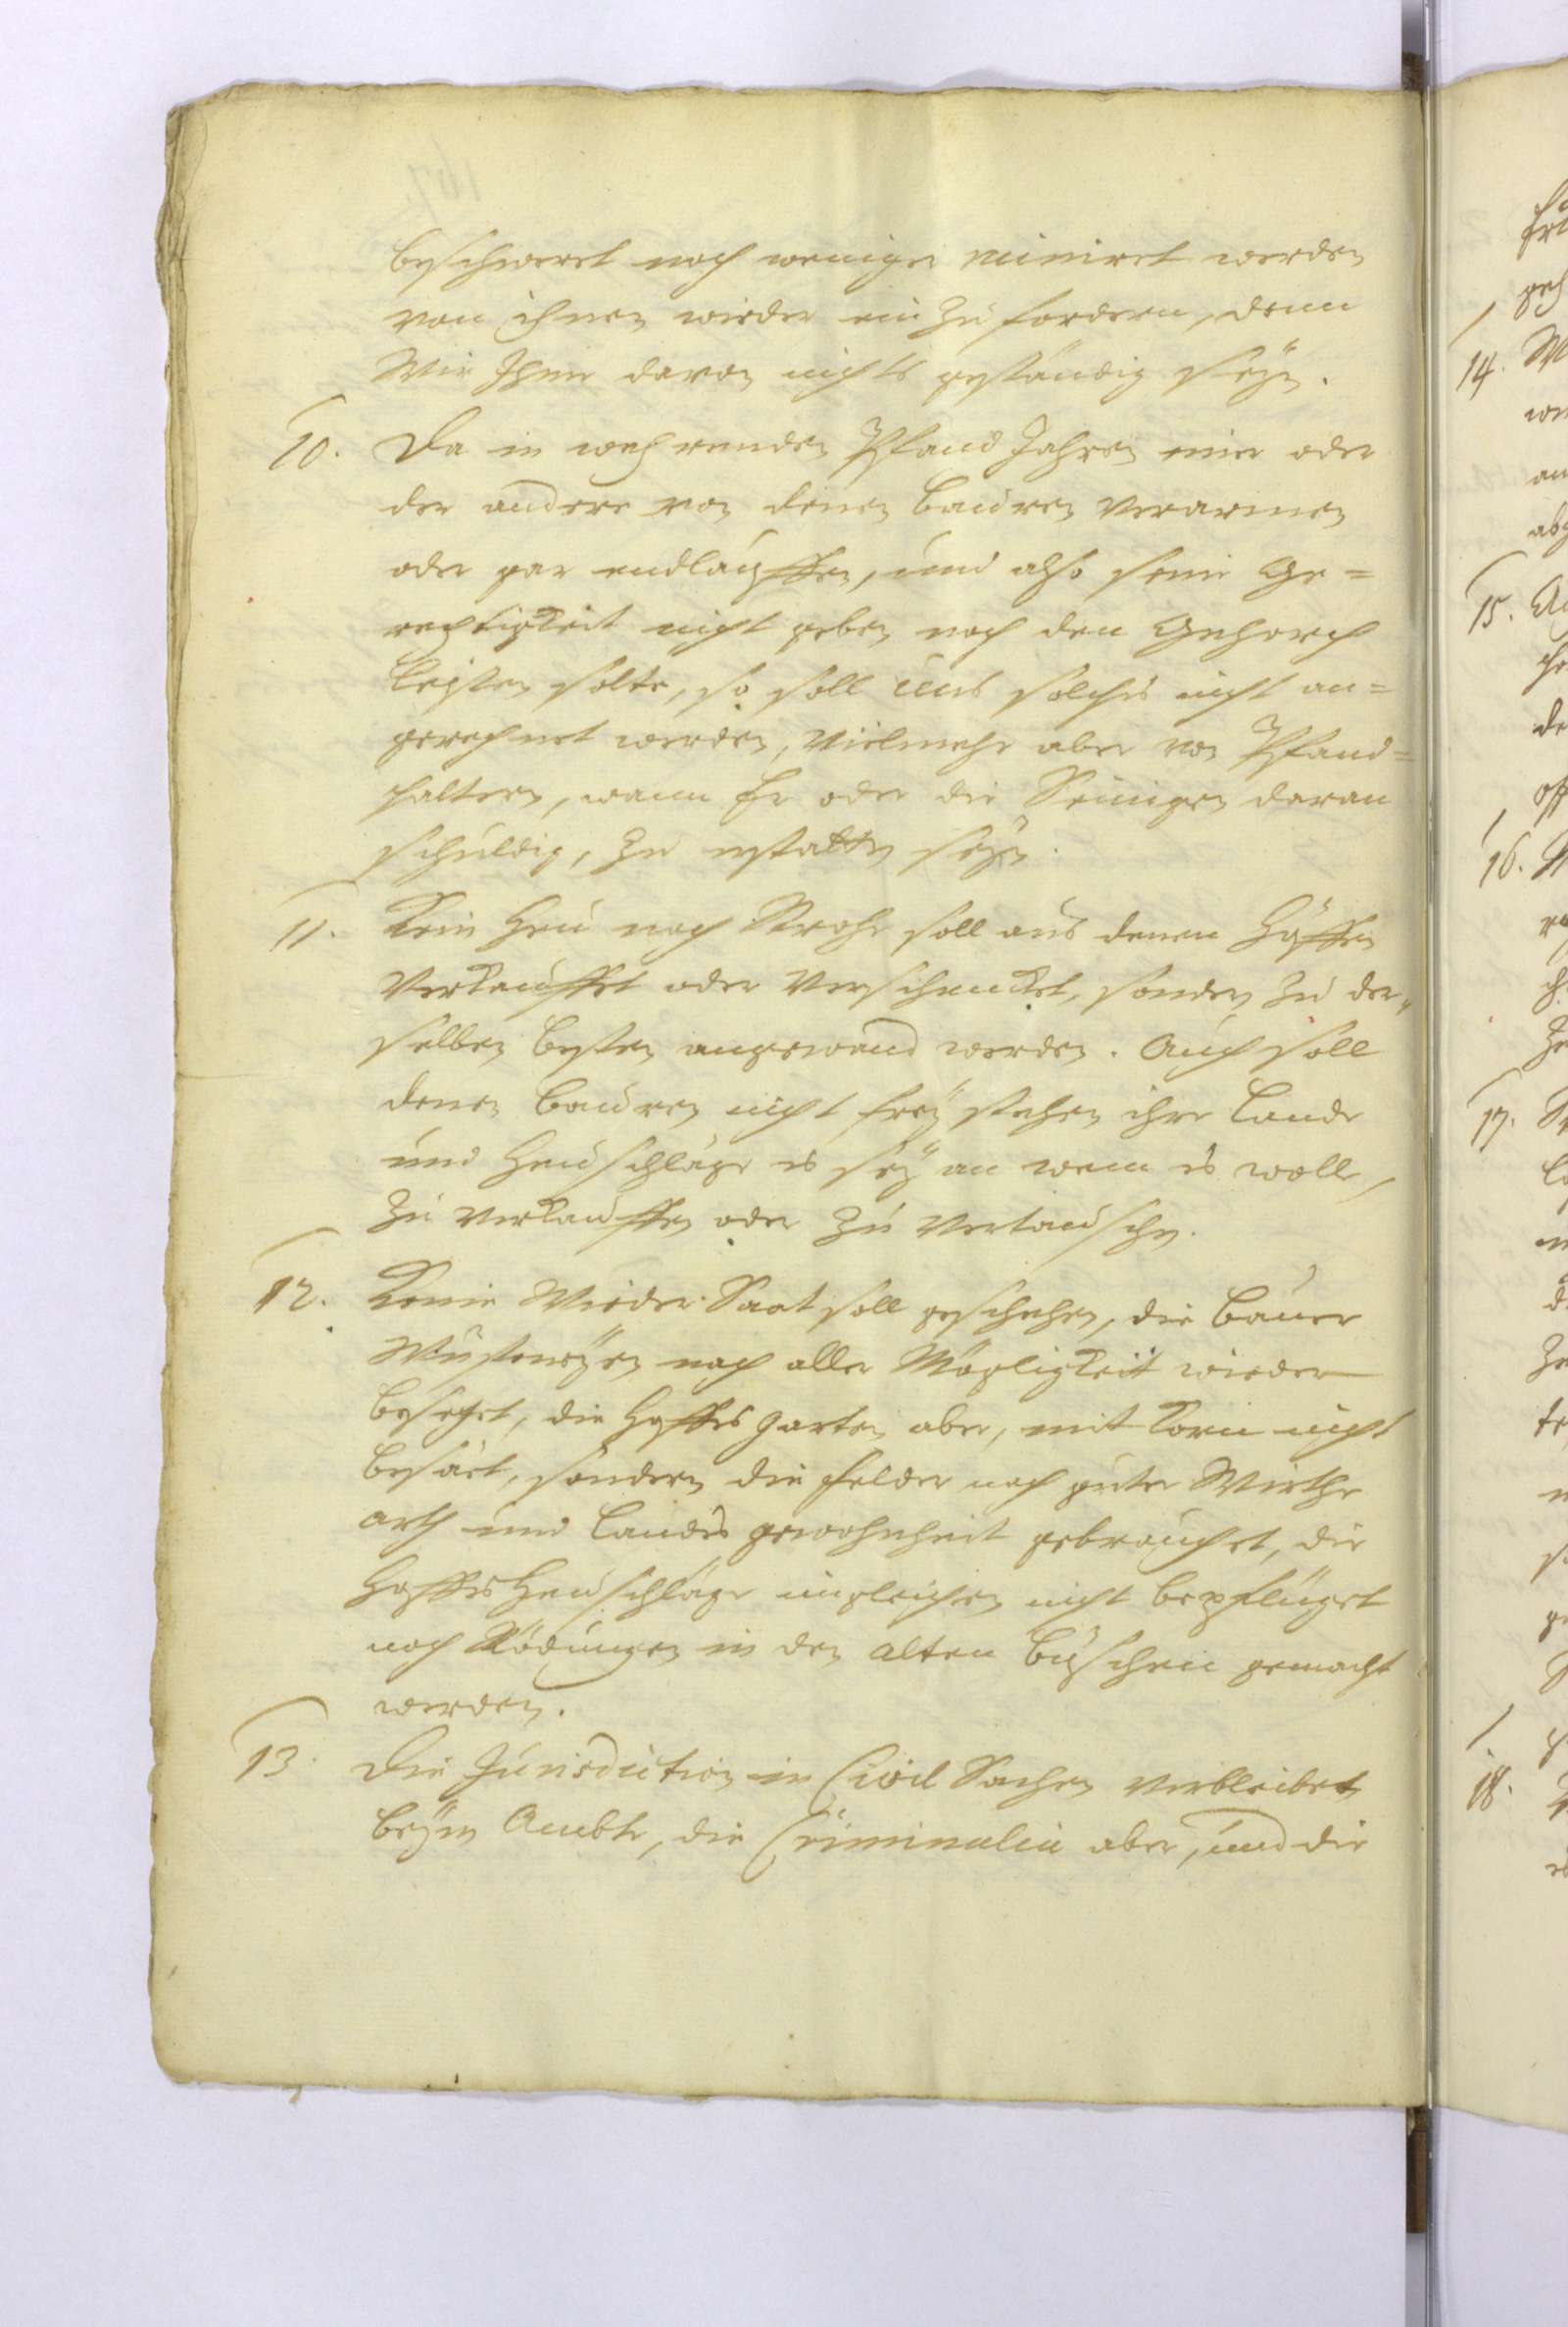 beschweret noch weniger ruiniret werden
von ihnen wieder ein zu fordern, denn
Wir Ihme davon nichts geständig seÿn.
10. Da in wehrenden Pfand Jahren einer oder
der andere von denen Bauren verarmen
oder gar endlauffen, und also seine Ge=
rechtigkeit nicht geben noch den Gehorch
leisten solte, so soll uns solches nicht an=
gerechnet werden, vielmehr aber von Pfand=
haltern, wann Er oder die Seinigen daran
schuldig, zu erstatten seÿn.
11. Kein Heu noch Strohe soll aus denen Höffen
verkauffet oder verschencket, sondern zu der=
selben besten angewand werden. Auch soll
denen Bauren nicht freÿ stehen ihre Lande
und Heuschläge es seÿ an wem es wolle,
zu verkauffen oder zu vertauschen.
12. Keine Wieder-Saat soll geschehen, die Bauer
Wüsteneÿen nach aller Mögligkeit wieder
besetzet, die Hoffes garten aber, mit Korn nicht
besäet, sondern die Felder nach guter Wirthe
arth und Landes gewohnheit gebrauchet, die
Hoffes Heuschläge ingleichen nicht bepflüget
noch Rödungen in den alten Büschen gemacht
werden.
13. Die Jurisdiction in Civil Sachen verbleibet
beÿm Ambte, die Criminalia aber, und die
14.
15.
16.
17.
18.